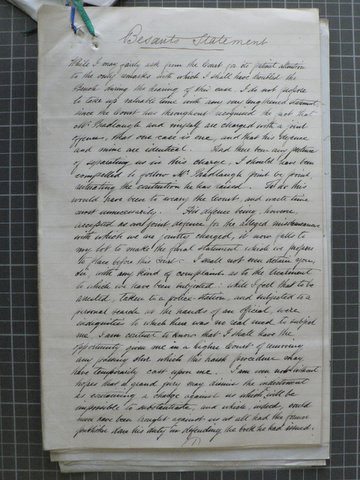 Besants Statement
While I may fairly ask from the Court for its patient attention
to the only remarks with which I shall have troubled the
Bench during the hearing of this case, I do not propose
to take up valuable time with any very lengthened statement
since the Court has throughout recognised the fact that
Mr Bradlaugh and myself are charged with a joint
offence, that our case is one, and that his defence
and mine are identical. Had there been any
of separating us in this charge, I should have been
compelled to follow Mr Bradlaugh point by point,
the contention he has raised. To do this
would have been to weary the Court, and waste time
most unnecessarily. Our defence being, however,
accepted as one joint defence for the alleged misdemeanour
with which we are jointly charged, it now falls to
my lot to make the final statement which we propose
to place before this Court. I shall not even detain you,
Sir, with any kind of complaint as to the treatment
to which we have been subjected: while I feel that to be
arrested, taken to a police station, and subjected to a
personal search at the hands of an official, were
indignities to which there was no real need to subject
me, I am content to know that I shall have the
opportunity given me in a higher Court of removing
any passing slur which this harsh procedure may
have temporarily cast upon me. I am even not without
hopes that a grand jury may dismiss the indictment
as containing a charge against us which will be
impossible to substantiate, and which, indeed, could
have been brought against us at all had the former
done his duty in defending the book he had issued.